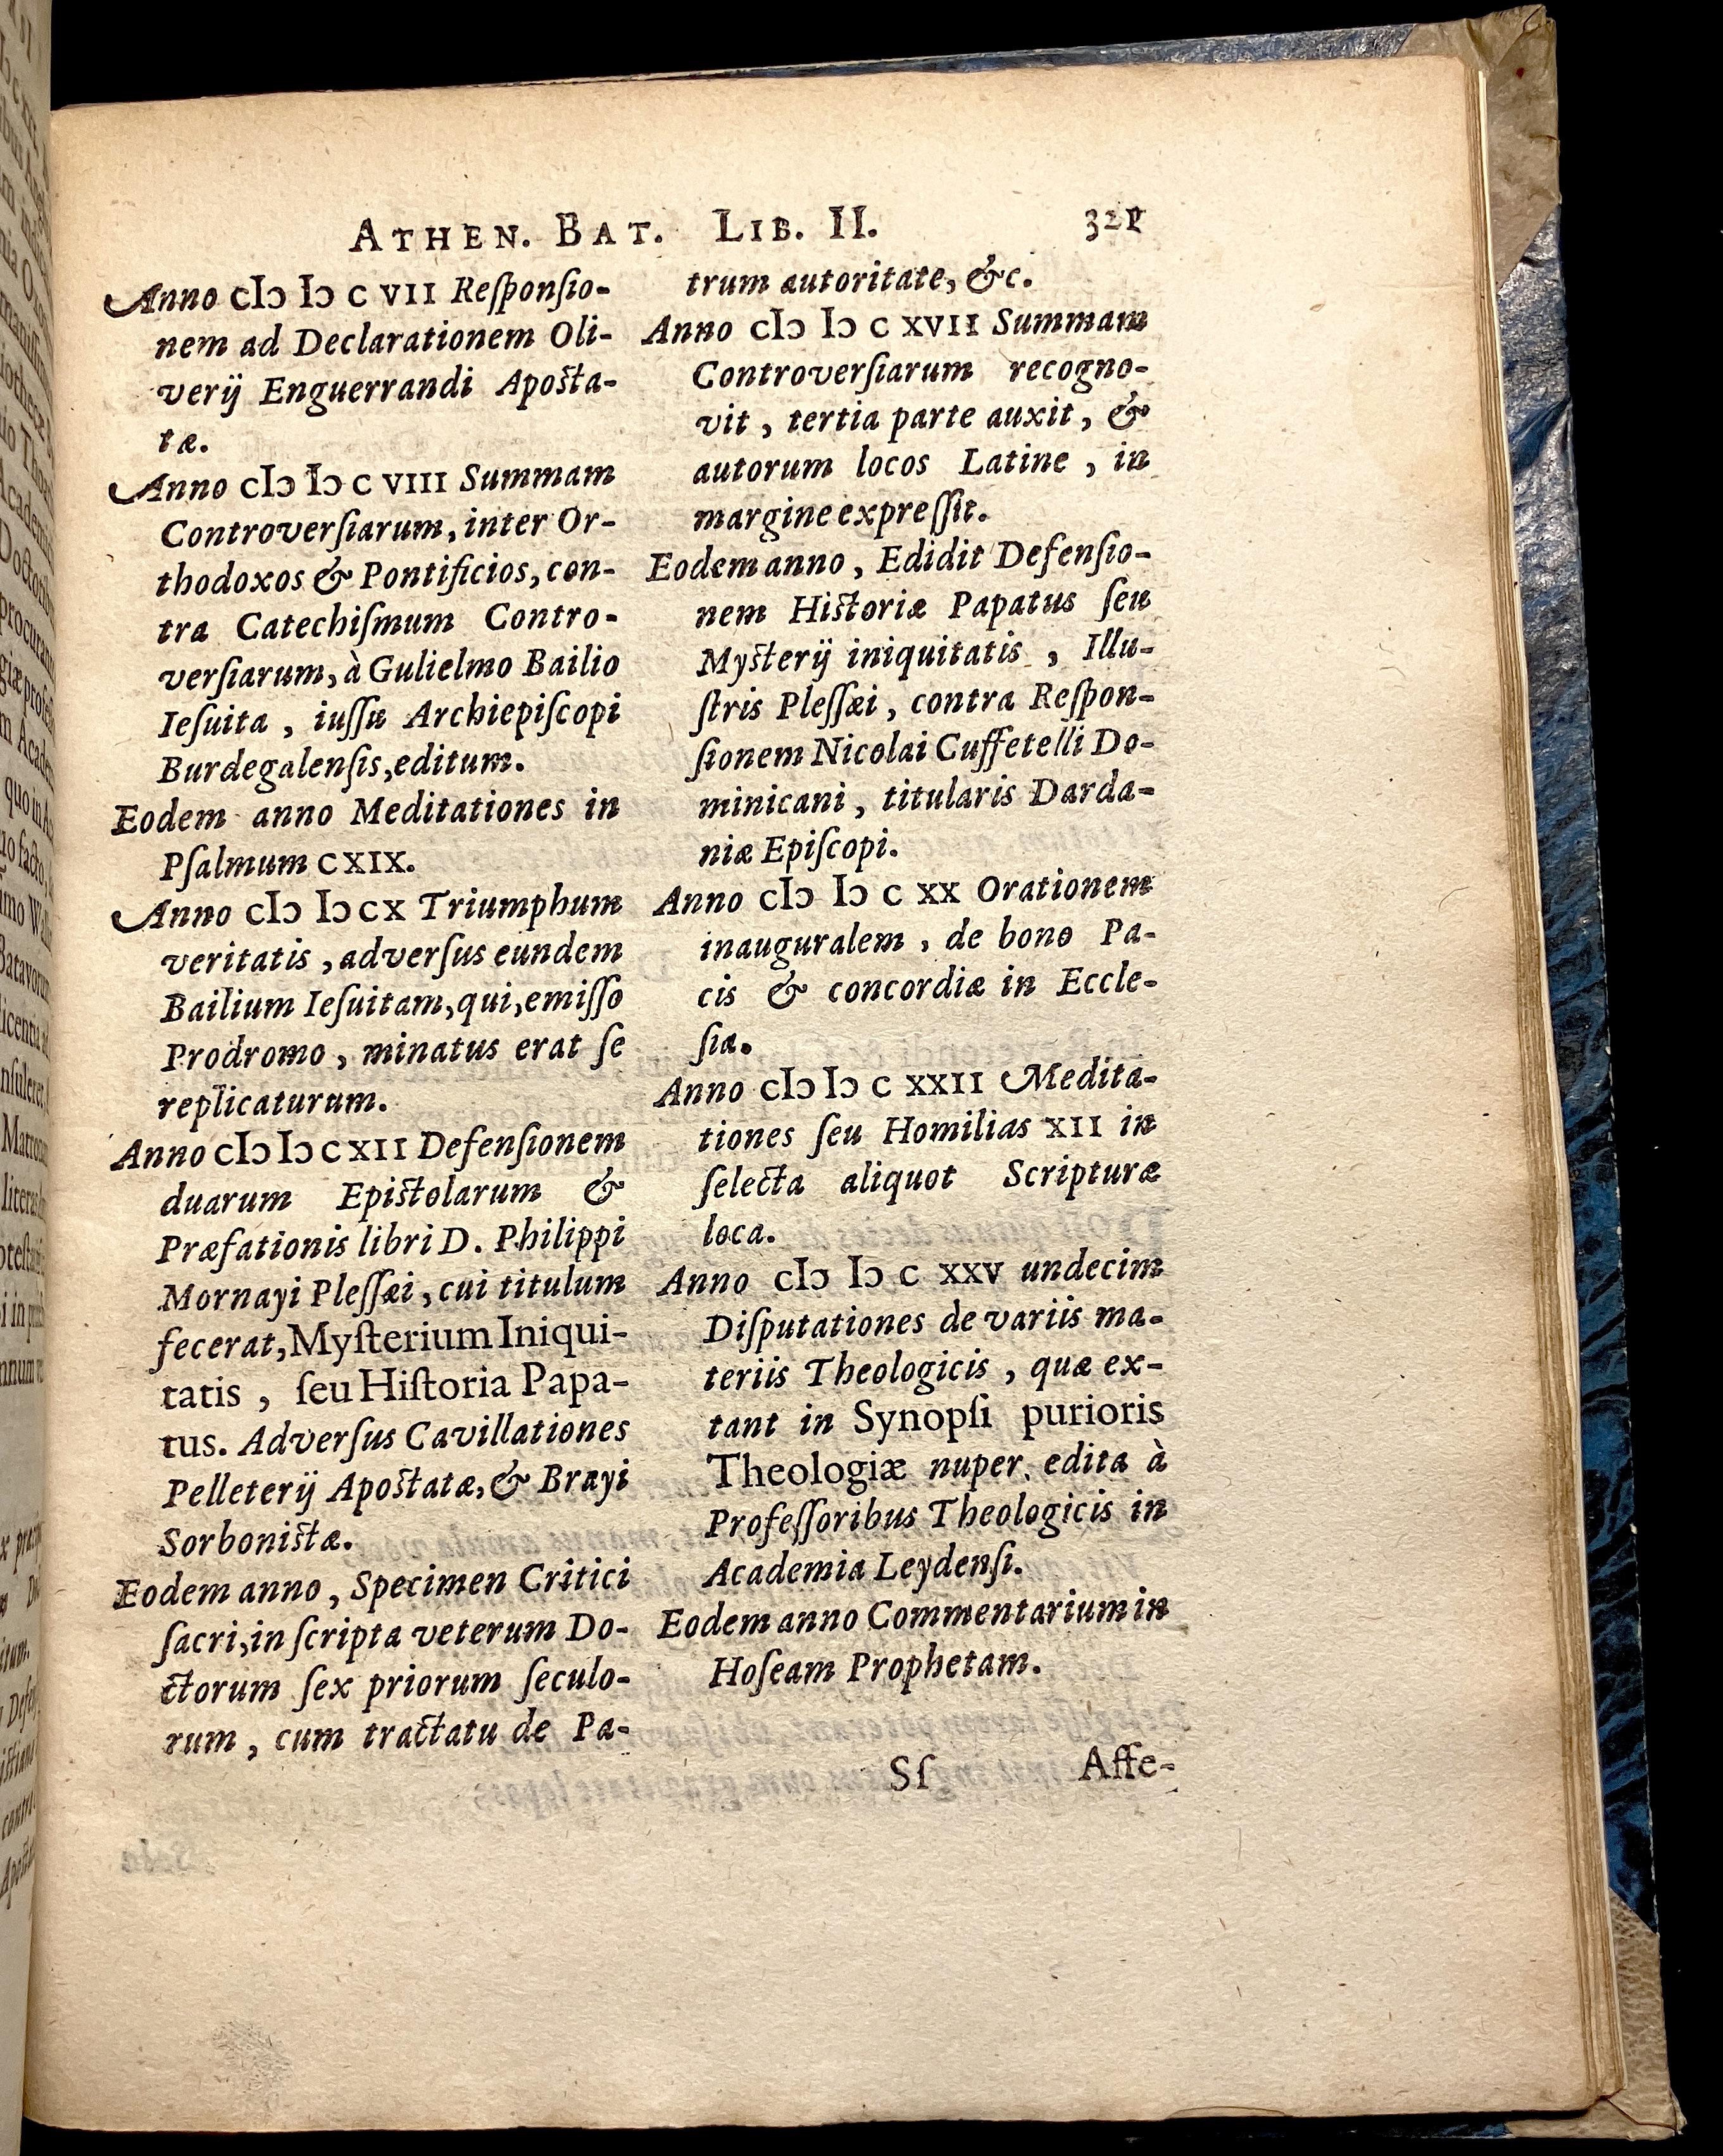 ATHEN. BAT. LIB. II. 321
Anno cIɔ Iɔ c VII Reſponſio-
nem ad Declarationem Oli-
verij Enguerrandi Apoſta-
tæ.
Anno cIɔ Iɔ c VIII Summam
Controverſiarum, inter Or-
thodoxos & Pontificios, con-
tra Catechiſmum Contro-
verſiarum, à Gulielmo Bailio
Ieſuita, iuſſu Archiepiſcopi
Burdegalenſis, editum.
Eodem anno Meditationes in
Pſalmum CXIX.
Anno cIɔ Iɔ c X Triumphum
veritatis, adverſus eundem
Bailium Ieſuitam, qui, emiſſo
Prodromo, minatus erat ſe
replicaturum.
Anno cIɔ Iɔ c XII Defenſionem
duarum Epiſtolarum &
Præfationis libri D. Philippi
Mornayi Pleſſæi, cui titulum
fecerat, Myſterium Iniqui-
tatis, ſeu Hiſtoria Papa-
tus. Adverſus Cavillationes
Pelleterij Apoſtatæ, & Brayi
Sorboniſtæ.
Eodem anno, Specimen Critici
ſacri, in ſcripta veterum Do-
ctorum ſex priorum ſeculo-
rum, cum tractatu de Pa-
trum autoritate, &c.
Anno cIɔ Iɔ c XVII Summam
Controverſiarum recogno-
vit, tertia parte auxit, &
autorum locos Latine, in
margine expreſſit.
Eodem anno, Edidit Defenſio-
nem Hiſtoriæ Papatus ſeu
Myſterij iniquitatis, Illu-
ſtris Pleſſæi, contra Reſpon-
ſionem Nicolai Cuffetelli Do-
minicani, titularis Darda-
niæ Epiſcopi.
Anno cIɔ Iɔ c XX Orationem
inauguralem, de bono Pa-
cis & concordiæ in Eccle-
ſia.
Anno cIɔ Iɔ c XXII Medita-
tiones ſeu Homilias XII in
ſelecta aliquot Scripturæ
loca.
Anno cIɔ Iɔ c XXV undecim
Diſputationes de variis ma-
teriis Theologicis, quæ ex-
tant in Synopſi purioris
Theologiæ nuper edita à
Profeſſoribus Theologicis in
Academia Leydenſi.
Eodem anno Commentarium in
Hoſeam Prophetam.
Sſ Aſſe-